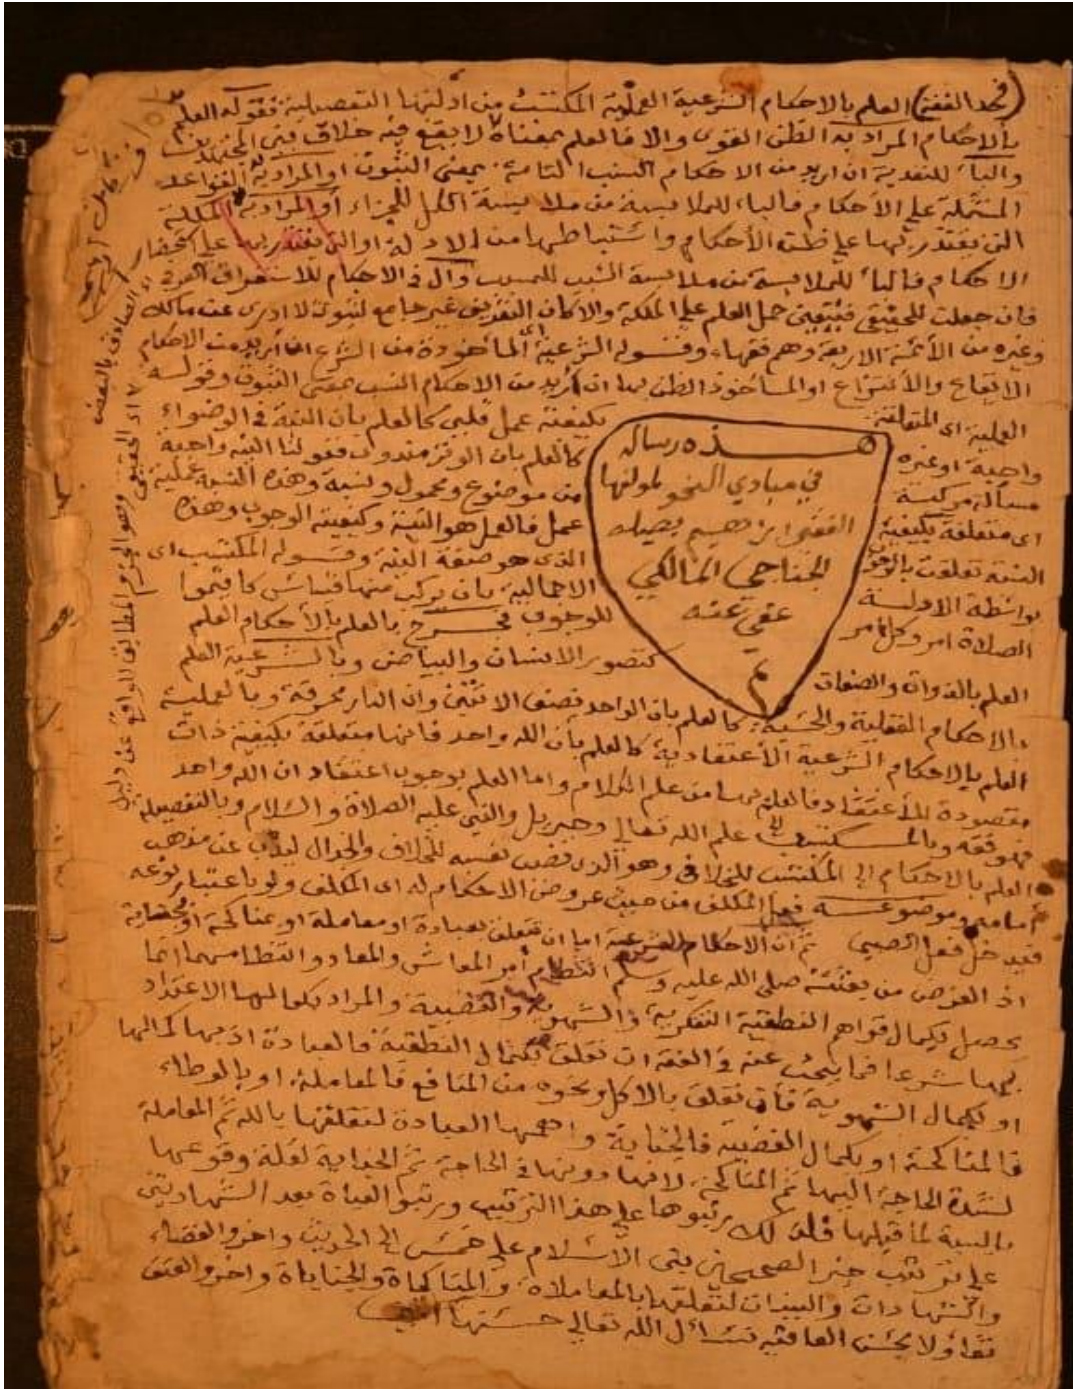 (في حد الفقه) العلم بالاحكام الشرعية العملية المكتسب من ادلتها التفصيلية فقوله العلم
بالاحكام المراد به الظن القوى والا فالعلم بمعناه لا يقع فيه خلاف بين المجتهدين
والباء للتعدية ان اريد من الاحكام النسب التامة بمعنى الثبوت او المراد به القواعد
المشتملة على الاحكام فالباء للملابسة من ملابسة الكل للجزاء او المراد به الملكة
التى يقتدر بها على ظن الأحكام واستنباطها من الادلة او التى يقتدر بها على استحضار
الاحكام فالباء للملابسة من ملابسة السبب للمسبب وال فى الاحكام للاستغراق
فان جعلت للحقيقى فيتعين حمل العلم على الملكة والا كان التعريف غير جامع لثبوت لا ادرى عن مالك
وغيره من الأئمة الاربعة وهم فقهاء وقوله الشرعية أى المأخوذة من الشرع ان أريد من الاحكام
الايقاع والانتزاع او المأخوذ الظن بها ان أريد من الاحكام النسب بمعنى الثبوت وقوله
العملية اى المتعلقة بكيفية عمل قلبي كالعلم بان النية فى الوضوء
واجبة او غيره كالعلم بان الوتر مندوب فقولنا النية واجبة
مسألة مركبة من موضوع ومحمول ونسبة وهذه النسبة عملية
اى متعلقة بكيفية عمل فالعمل هو النية وكيفيته الوجوب وهذه
النسبة تعلقت بالوجوب الذى هو صفة النية وقوله المكتسب اى
بواسطة الادلة الاجمالية بان يركب منها قياس كأقيموا
الصلاة امر وكل امر للوجوب فخرج بالعلم بالأحكام العلم
العلم بالذوات والصفات كتصور الانسان والبياض وبالشرعية العلم
هذه رسالة
في مبادي النحو لمولفها
الفقير ابراهيم بصيله
الجناجي المالكي
عفي عنه
م
بالاحكام العقلية والحسية كالعلم بان الواحد نصف الاثنين وان النار محرقة وبالعملية
العلم بالاحكام الشرعية الاعتقادية كالعلم بأن الله واحد فانها متعلقة بكيفية ذات
مقصودة للاعتقاد فالعلم بها من علم الكلام واما العلم بوجوب اعتقاد ان الله واحد
فهو فقه وبالمكتسب علم الله تعالى وجبريل والنبى عليه الصلاة والسلام وبالتفصيلية
العلم بالاحكام المكتسب للخلافى وهو الذى نصب نفسه للخلاف والجدال ليذب عن مذهب
امامه وموضوعه فعل المكلف من حيث عروض الاحكام له اى المكلف ولو باعتبار نوعه
فيدخل فعل الصبى ثم ان الاحكام الشرعية اما ان تتعلق بعبادة او معاملة او مناكحة او بجناية
اذ الغرض من بعثته صلى الله عليه وسلم انتظام أمر المعاش والمعاد وانتظامهما انما
يحصل بكمال قواهم النطقية الفكرية والشهوية والغضبية والمراد بكمالها الاعتداد
بها شرعا فما يبحث عنه فى الفقه ان تعلق بكمال النطقية فالعبادة اذ بها كمالها
او بكمال الشهوية فان تعلق بالاكل ونحوه من المنافع فالمعاملة او بالوطاء
فالمناكحة او بكمال الغضبية فالجناية واهمها العبادة لتعلقها بالله ثم المعاملة
لشدة الحاجة اليها ثم المناكحة لانها دونها فى الحاجة ثم الجناية لقلة وقوعها
بالنسبة لما قبلها فلذلك رتبوها على هذا الترتيب ورتبوا العبادة بعد الشهادتين
على ترتيب خبر الصحيحين بنى الاسلام على خمس الى الحديث واخروا القضاء
والشهادات والبينات لتعلقها بالمعاملات والمناكحات والجنايات واخروا العتق
تفاؤلا بحسن العاقبة نسأل الله تعالى حسنها آمين
وهو الجزم المطابق للواقع عن دليل